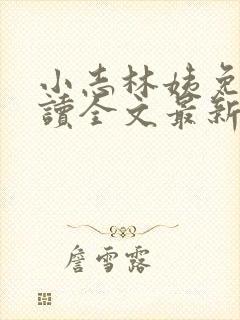 小志林姨免
讀全文最新
詹雪露